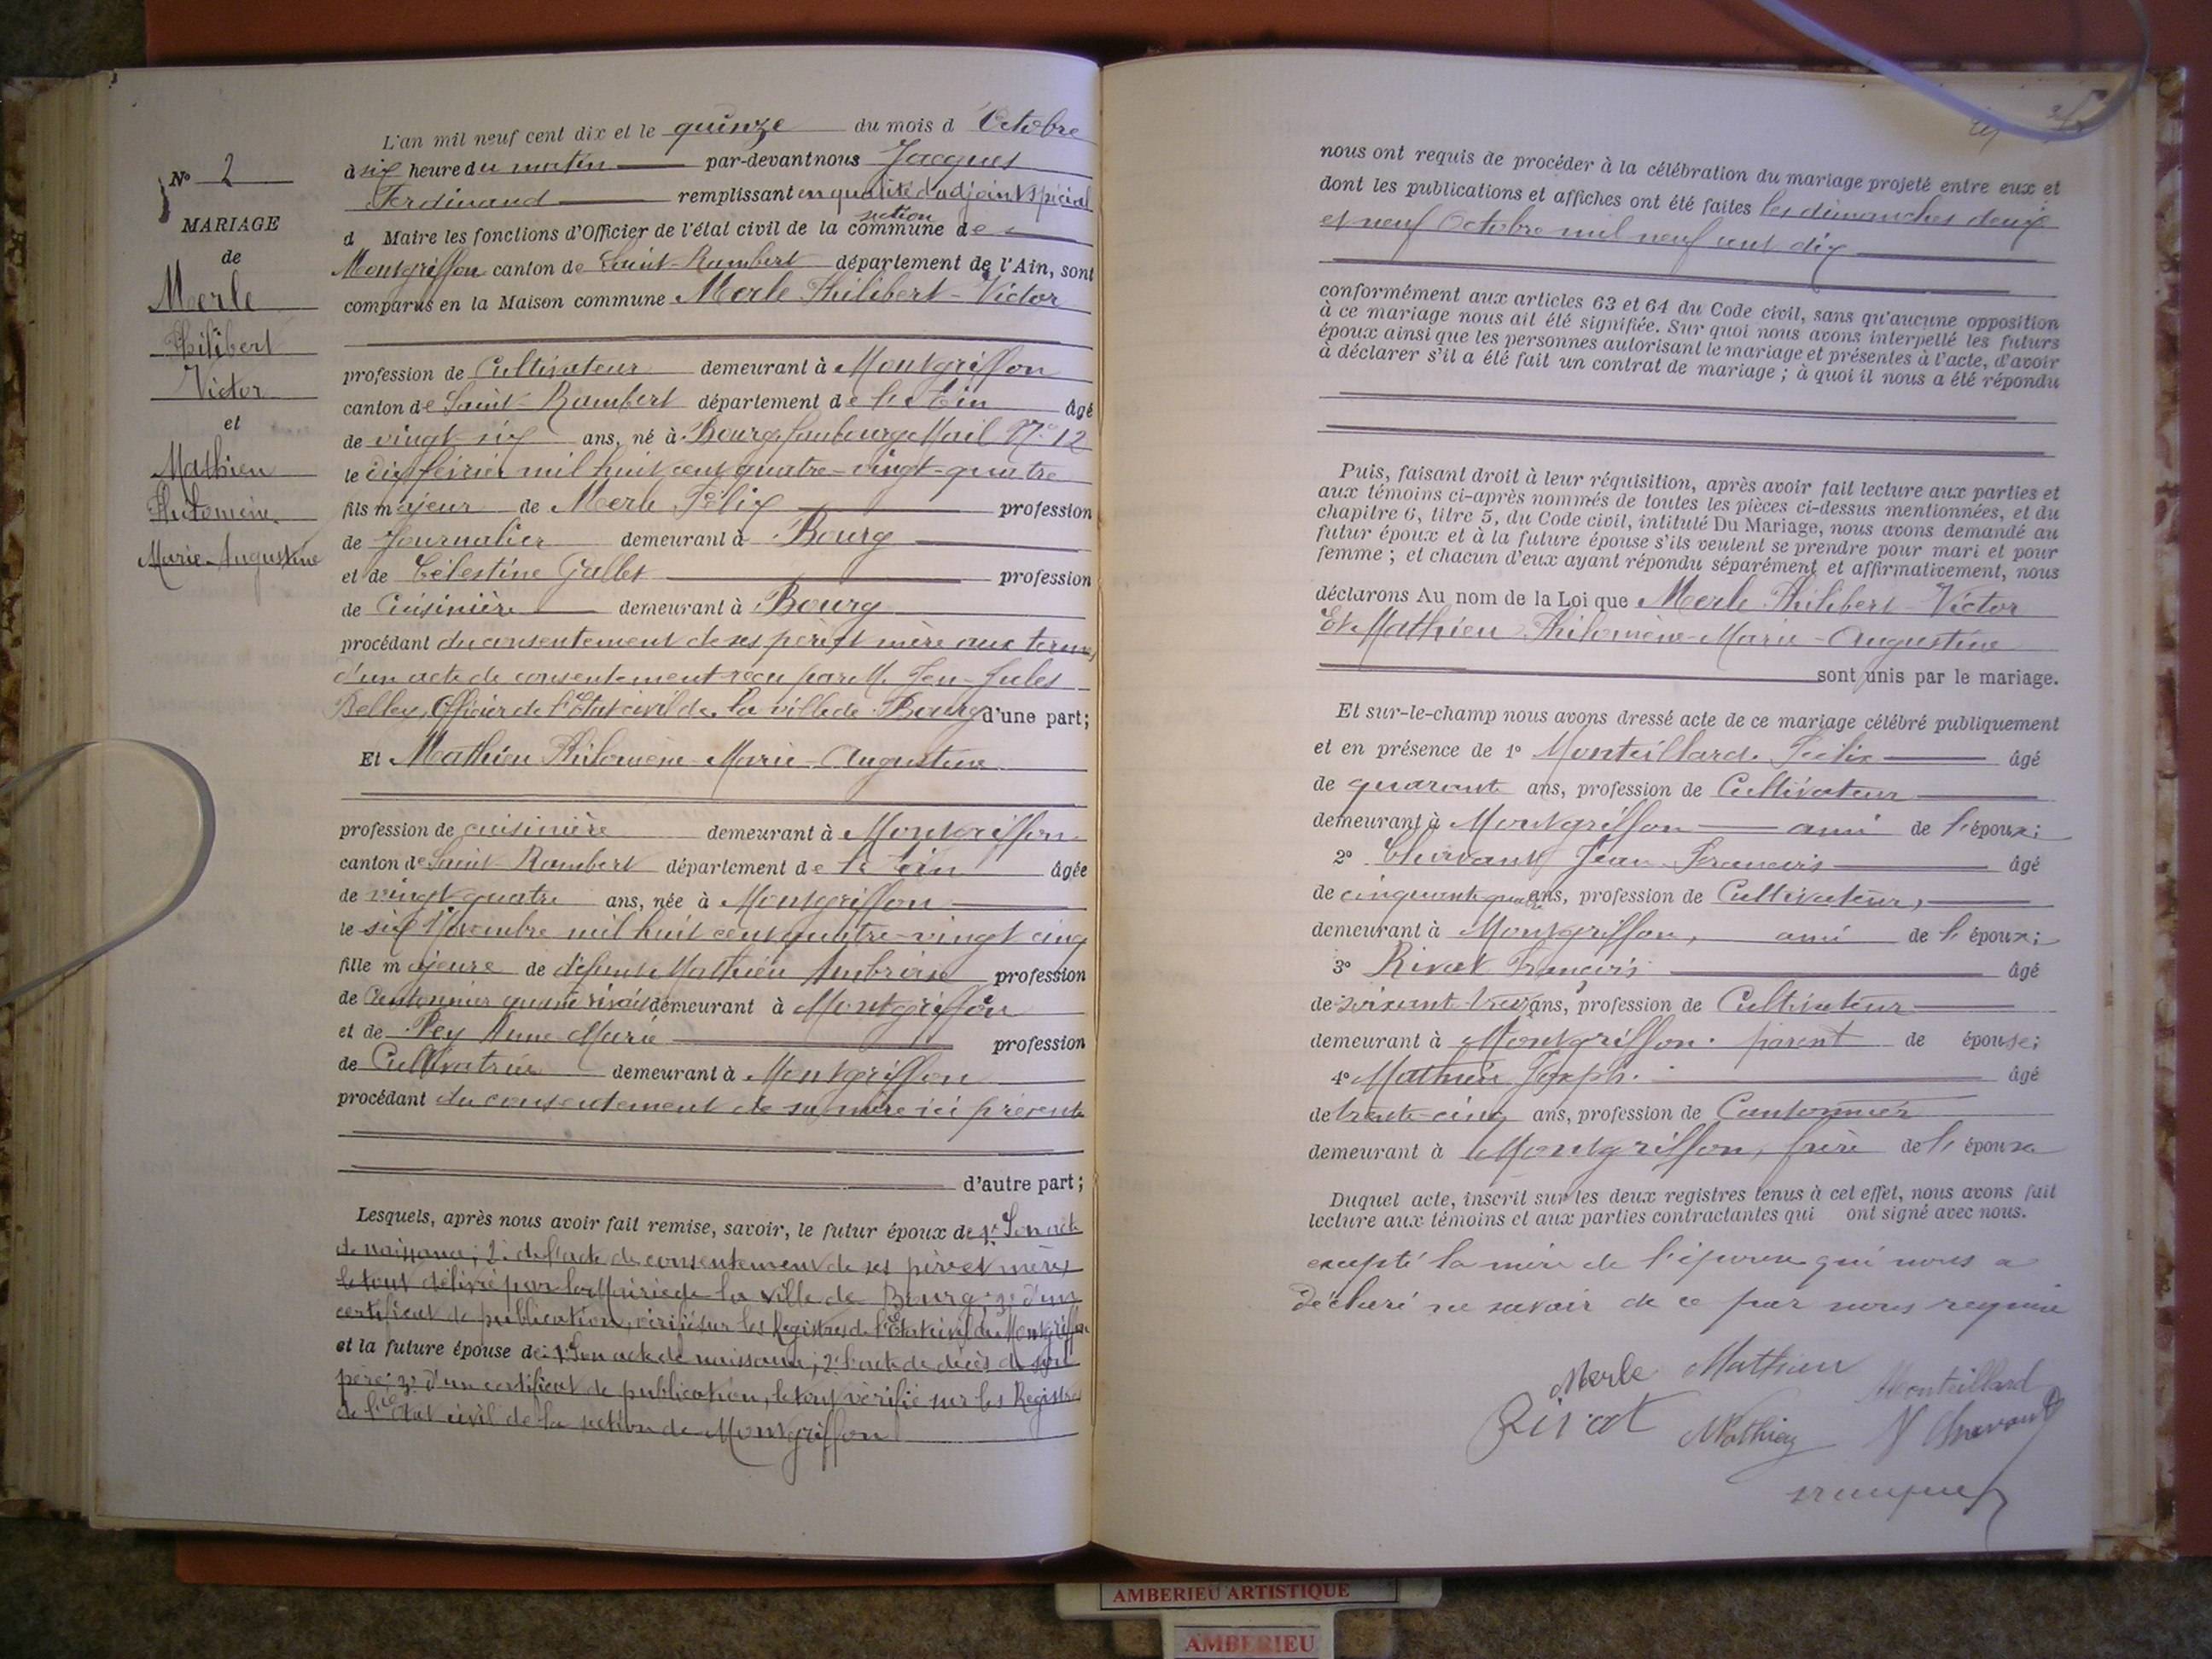 L'an mil neuf cent dix et le quinze du mois d Octobre
à six heure du matin par-devant nous Jacques
Ferdinand remplissant en qualité d'adjoint spécial
section
d Maire les fonctions d'Officier de l'état civil de la commune de
Montgriffon canton de Saint-Rambert département de l'Ain, sont
comparus en la Maison commune Merle Philibert-Victor
N° 2
MARIAGE
de
Merle
Philibert
Victor
et
Mathieu
Philomène
Marie-Augustine
profession de Cultivateur demeurant à Montgriffon
canton de Saint-Rambert département de l'Ain âgé
de vingt-six ans, né à Bourg, faubourg Mail N° 12
le dix février mil huit cent quatre-vingt-quatre
fils majeur de Merle Félix profession
de Journalier demeurant à Bourg
et de Célestine Gallet profession
de Cuisinière demeurant à Bourg
procédant du consentement de ses père et mère aux termes
d'un acte de consentement reçu par M. Jules
Belley, Officier de l'Etat civil de la ville de Bourg d'une part;
Et Mathieu Philomène-Marie-Augustine
profession de cuisinière demeurant à Montgriffon
canton de Saint-Rambert département de l'Ain âgée
de vingt-quatre ans, née à Montgriffon
le six Novembre mil huit cent quatre-vingt cinq
fille majeure de défunt Mathieu Ambroise profession
de Cantonnier quand vivait demeurant à Montgriffon
et de Rey Anne Marie profession
de Cultivatrice demeurant à Montgriffon
procédant du consentement de sa mère ici présente
d'autre part;
Lesquels, après nous avoir fait remise, savoir, le futur époux de 1° Son acte
de naissance; 2° de l'acte de consentement de ses père et mère,
le tout délivré par la Mairie de la ville de Bourg; 3° d'un
certificat de publication, vérifié sur les Registres de l'Etat civil de Montgriffon
et la future épouse de: 1° Son acte de naissance; 2° l'acte de décès de son
père; 3° d'un certificat de publication, le tout vérifié sur les Registres
de l'Etat civil de la section de Montgriffon
nous ont requis de procéder à la célébration du mariage projeté entre eux et
dont les publications et affiches ont été faites les dimanches deux
et neuf Octobre mil neuf cent dix
conformément aux articles 63 et 64 du Code civil, sans qu'aucune opposition
à ce mariage nous ait été signifiée. Sur quoi nous avons interpellé les futurs
époux ainsi que les personnes autorisant le mariage et présentes à l'acte, d'avoir
à déclarer s'il a été fait un contrat de mariage; à quoi il nous a été répondu
Puis, faisant droit à leur réquisition, après avoir fait lecture aux parties et
aux témoins ci-après nommés de toutes les pièces ci-dessus mentionnées, et du
chapitre 6, titre 5, du Code civil, intitulé Du Mariage, nous avons demandé au
futur époux et à la future épouse s'ils veulent se prendre pour mari et pour
femme; et chacun d'eux ayant répondu séparément et affirmativement, nous
déclarons Au nom de la Loi que Merle Philibert-Victor
Et Mathieu Philomène-Marie-Augustine
sont unis par le mariage.
Et sur-le-champ nous avons dressé acte de ce mariage célébré publiquement
et en présence de 1° Monteillard Félix âgé
de quarante ans, profession de Cultivateur
demeurant à Montgriffon ami de l'époux;
2° Chavant Jean François âgé
de cinquante quatre ans, profession de Cultivateur,
demeurant à Montgriffon, ami de l'époux;
3° Rivat François âgé
de soixante trois ans, profession de Cultivateur
demeurant à Montgriffon. parent de épouse;
4° Mathieu Joseph. âgé
de trente-cinq ans, profession de Cantonnier
demeurant à Montgriffon, frère de l'épouse
Duquel acte, inscrit sur les deux registres tenus à cet effet, nous avons fait
lecture aux témoins et aux parties contractantes qui ont signé avec nous.
excepté la mère de l'épouse qui nous a
déclaré ne savoir de ce par nous requise
Merle Mathieu Monteillard
Rivat Mathieu Chavant
Jacques
AMBERIEU ARTISTIQUE
AMBERIEU